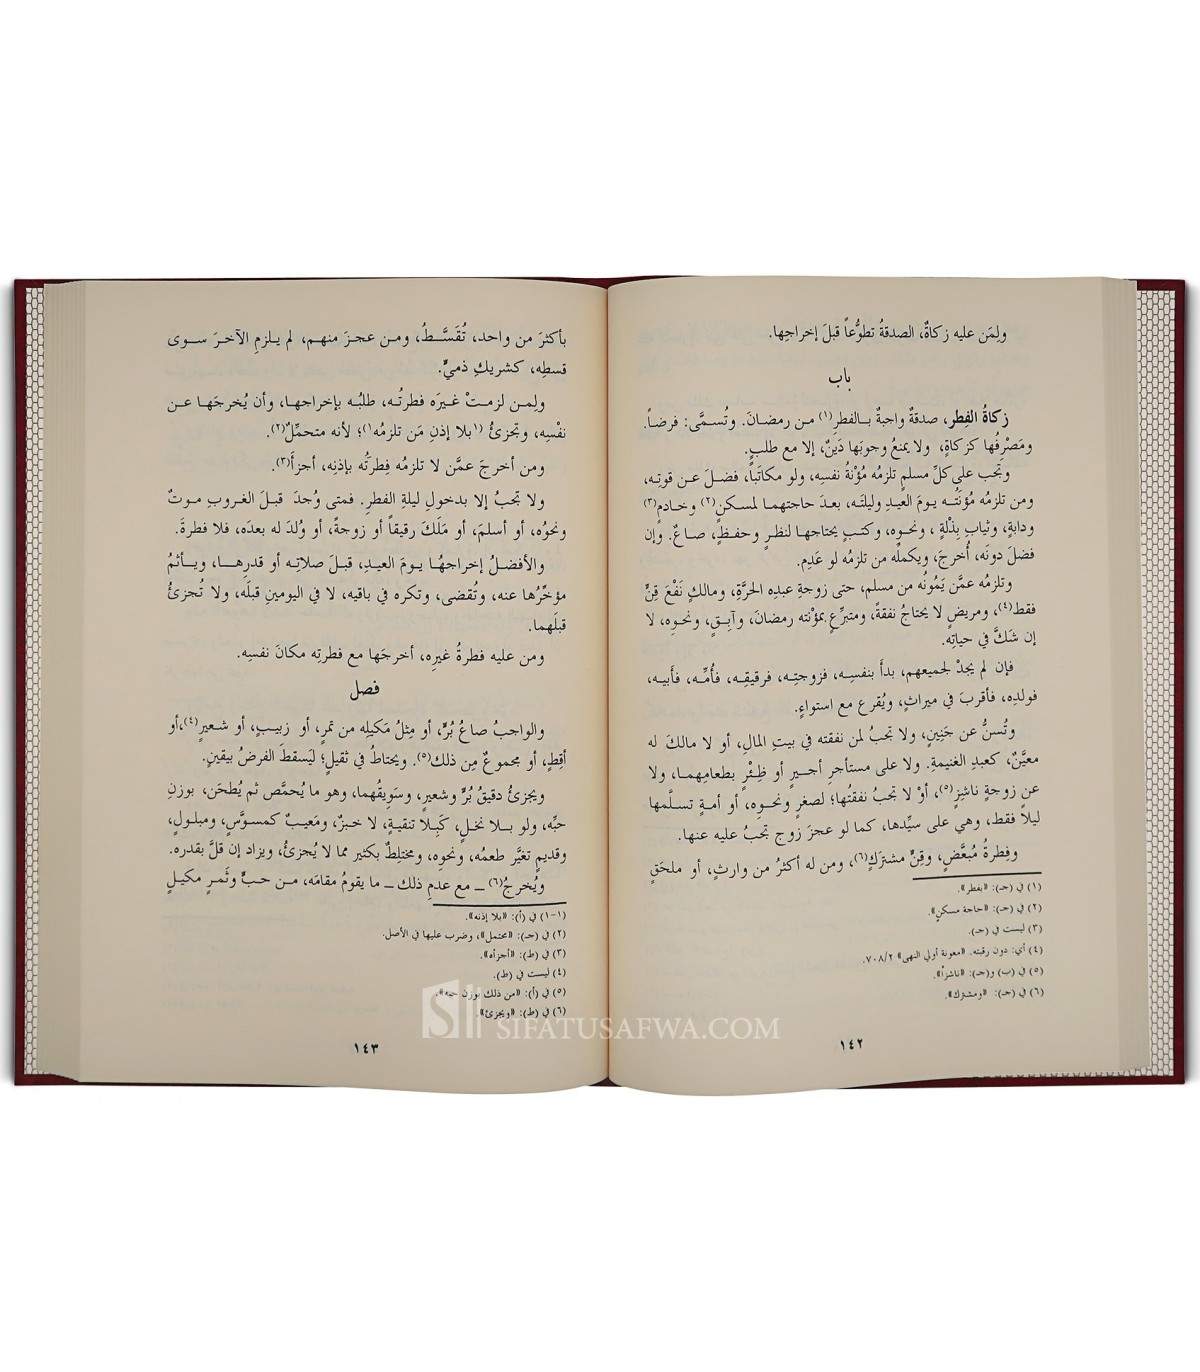 ولِمَن عليه زكاةٌ، الصدقةُ تطوُّعاً قبلَ إخراجِها.
باب
زكاةُ الفِطر، صدقةٌ واجبةٌ بـالفطرِ(١) مـن رمضـانَ. وتُسمَّى: فرضـاً.
ومَصْرِفُها كزكاةٍ، ولا يمنعُ وجوبَها دَيَنٌ، إلا مع طلبٍ.
وتجَب على كلِّ مسلمٍ تلزمُه مُؤْنةُ نفسِه، ولو مكاتَباً، فضـلَ عـن قوتِـه،
ومن تلزمُه مُؤنَتُـه يـومَ العيـدِ وليلتَـه، بعـدَ حاجتِهمـا لمسكـنٍ(٢) وخـادمٍ(٣)
ودابةٍ، وثيابِ بِذْلةٍ ، ونحـوِه، وكتـبٍ يحتاجهـا لنظـرٍ وحفـظٍ، صـاعٌ. وإن
فضلَ دونَه، أُخرجَ، ويكملُه من تلزمُه لو عَدِم.
وتلزمُه عمَّن يَمُونُه من مسلم، حتى زوجةِ عبدِه الحرَّةِ، ومالكِ نَفْعَ قِنٍّ
فقط(٤)، ومريضٍ لا يحتاجُ نفقةً، ومتبرِّعٍ بمؤنته رمضانَ، وآبِـقٍ، ونحـوِه، لا
إن شَكَّ في حياتِه.
فإن لم يجدْ لجميعهم، بدأ بنفسِـه، فزوجتِـه، فرقيقِـه، فأُمِّـه، فأبيـه،
فولدِه، فأقربَ في ميراثٍ، ويُقرع مع استواءٍ.
وتُسنُّ عن جَنِينٍ، ولا تجبُ لمن نفقته في بيتِ المالِ، أو لا مالكَ له
معيَّنٌ، كعبدِ الغنيمةِ. ولا على مستأجرِ أجـيرٍ أو ظِـئْرٍ بطعامِهمـا، ولا
عن زوجةٍ ناشِزٍ(٥)، أوْ لا تجبُ نفقتُها؛ لصغرٍ ونحـوِه، أو أمـةٍ تسـلَّمها
ليلاً فقط، وهي على سيِّدها، كما لو عجزَ زوج تجبُ عليه عنها.
وفطرةُ مُبعَّضٍ، وقِنٍّ مشترَكٍ(٦)، ومن له أكثرُ من وارثٍ، أو ملحَقٍ
(١) في (جـ): «بفطر».
(٢) في (جـ): «حاجة مسكنٍ».
(٣) ليست في (جـ).
(٤) أي: دون رقبته. «معونة أولي النهى» ٧٠٨/٢.
(٥) في (ب) و(جـ): «ناشزاً».
(٦) في (جـ): «ومشترك».
١٤٢
بأكثرَ من واحد، تُقَسَّـطُ، ومـن عجـزَ منهـم، لم يلـزمِ الآخـرَ سـوى
قسطِه، كشريكِ ذميٍّ.
ولِمـن لزمـتْ غـيرَه فطرتُـه، طلبُـه بإخراجهـا، وأن يُخرجَهـا عـن
نفْسِه، وتجزئُ (١بلا إذنِ مَن تلزمُه١)؛ لأنه متحمِّلٌ(٢).
ومن أخرجَ عمَّن لا تلزمُه فِطرتُه بإذنِه، أجزأ(٣).
ولا تجبُ إلا بدخولِ ليلةِ الفطرِ. فمتى وُجدَ قبـلَ الغـروبِ مـوتٌ
ونحوُه، أو أسلمَ، أو مَلَكَ رقيقاً أو زوجةً، أو وُلدَ له بعدَه، فلا فطرةَ.
والأفضـلُ إخراجهُـا يـومَ العيـدِ، قبـلَ صلاتِـه أو قدرِهـا، ويـأثمُ
مؤخِّرُها عنه، وتُقضى، وتكره في باقيه، لا في اليومينِ قبلَه، ولا تُجزئُ
قبلَهما.
ومن عليه فطرةُ غيرِه، أخرجَها مع فطرتِه مكانَ نفسِه.
فصل
والواجبُ صاعُ بُرٍّ، أو مِثلُ مَكيلِه من تمرٍ، أو زبيبٍ، أو شعيرٍ(٤)،أو
أقِطٍ، أو مجموعٌ مِن ذلك(٥). ويحتاطُ في ثقيلٍ؛ ليَسقطَ الفرضُ بيقينٍ.
ويجزئُ دقيقُ بُرٍّ وشعيرٍ، وسَوِيقُهما، وهو ما يُحمَّص ثم يُطحَن، بوزنِ
حبِّه، ولو بـلا نخـلٍ، كَبِلا تنقيـةٍ، لا خـبزٌ، ومَعيـبٌ كمسـوَّسٍ، ومبلـولٍ،
وقديمٍ تغيَّر طعمُه، ونحوِه، ومختلِطٌ بكثيرِ مما لا يُجزئُ، ويزاد إن قلَّ بقدره.
ويُخرجُ(٦) ــ مع عدمِ ذلك ــ ما يقومُ مقامَه، مـن حـبٍّ وثَمـرٍ مكيـلٍ
(١-١) في (أ): «بلا إذنه».
(٢) في (جـ): «محتمل»، وضرب عليها في الأصل.
(٣) في (ط): «أجزأه».
(٤) ليست في (ط).
(٥) في (أ): «من ذلك بوزن حبه».
(٦) في (ط): «ويجزئ».
١٤٣
SIFATUSAFWA.COM